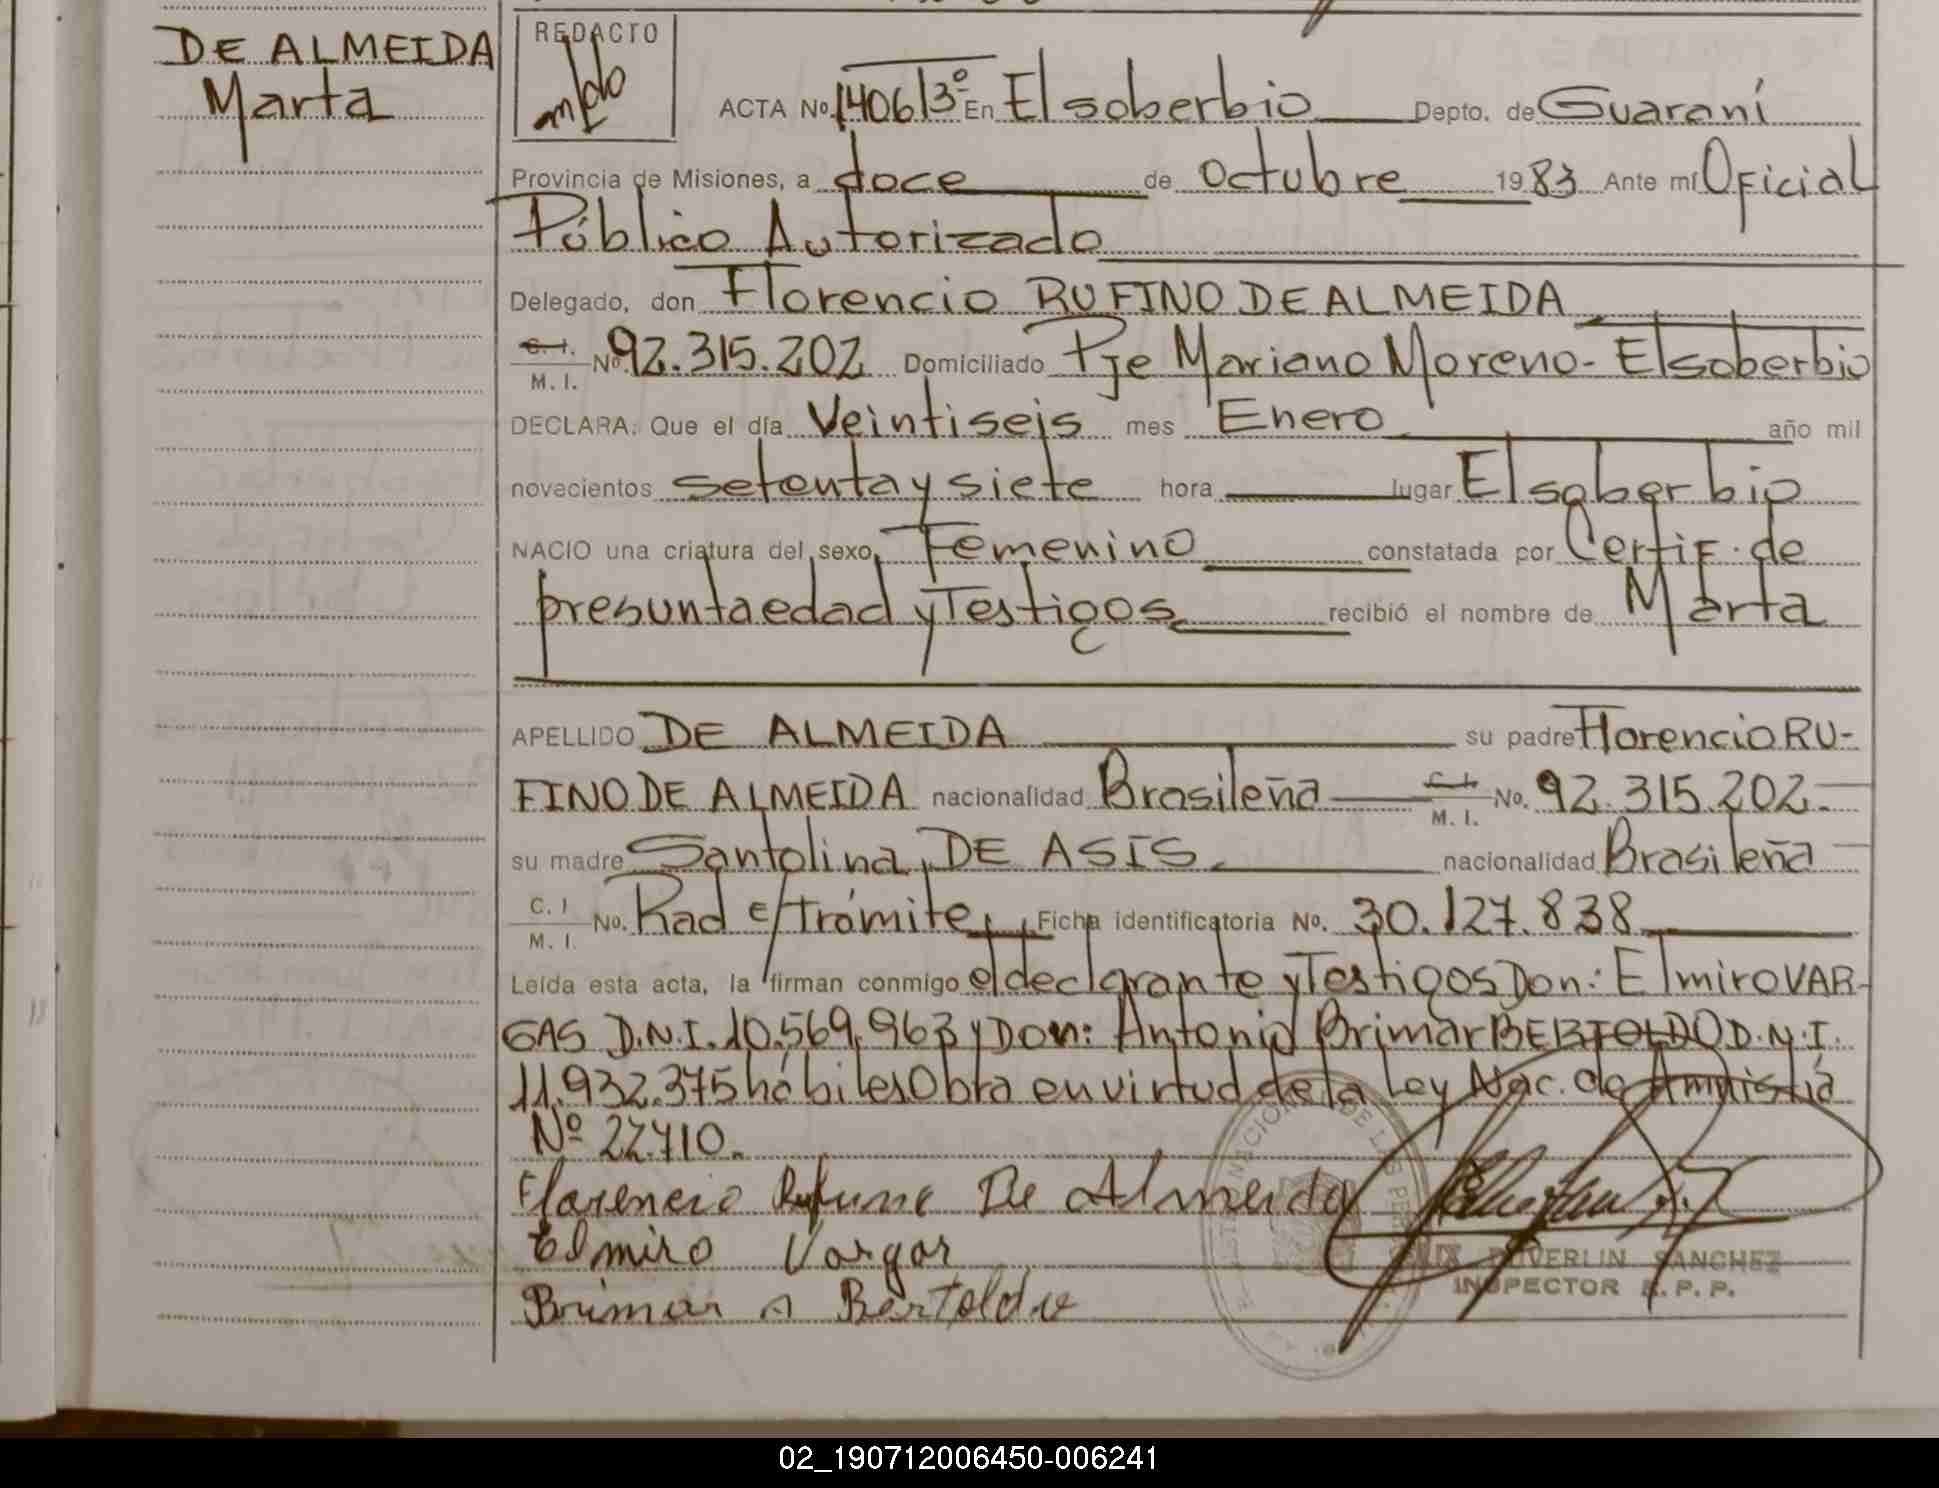 DE ALMEIDA
Marta
REDACTO
ACTA Nº 1406/3º En El soberbio Depto. de Guaraní
Provincia de Misiones, a doce de octubre 1983 Ante mí Oficial
Público Autorizado
Delegado, don Florencio RUFINO DE ALMEIDA
C. I.
M. I. Nº 92.315.202 Domiciliado Pje Mariano Moreno - El soberbio
DECLARA: Que el día Veintiseis mes Enero año mil
novecientos setenta y siete hora lugar El soberbio
NACIO una criatura del sexo Femenino constatada por Certif. de
presunta edad y Testigos recibió el nombre de Marta
APELLIDO DE ALMEIDA su padre Florencio RU-
FINO DE ALMEIDA nacionalidad Brasileña C. I. M. I. No. 92.315.202.-
su madre Santolina DE ASIS nacionalidad Brasileña
C. I
M. I. No. Rad e/trámite, Ficha identificatoria Nº. 30.127.838
Leída esta acta, la firman conmigo el declarante y Testigos Don: Elmiro VAR-
GAS D.N.I. 10.569.963 y Don: Antonio Brimar BERTOLDO D.N.I.
11.932.375 hábiles Obra en virtud de la Ley Nac. de Amnistiá
Nº 22.410.
Florencio Rufino De Almeida
Elmiro Vargas
Brimar A Bertoldo
DUVERLIN SANCHEZ
INSPECTOR R. P. P.
02_190712006450-006241